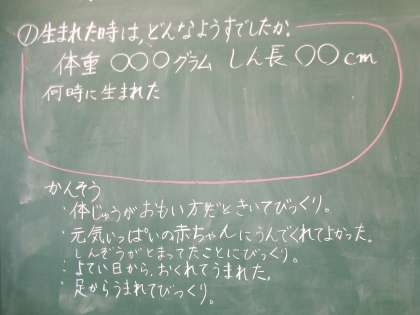 ①生まれた時は、どんなようすでしたか。
体重 ○○○グラム しん長 ○○cm
何時に生まれた
かんそう
・体じゅうがおもい方だときいてびっくり。
・元気いっぱいの赤ちゃんにうんでくれてよかった。
・しんぞうがとまってたことにびっくり。
・よてい日から、おくれてうまれた。
・足からうまれてびっくり。